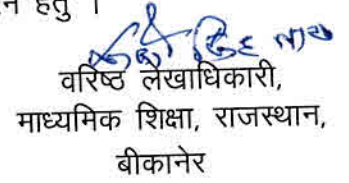 हेतु ।
वरिष्ठ लेखाधिकारी,
माध्यमिक शिक्षा, राजस्थान,
बीकानेर